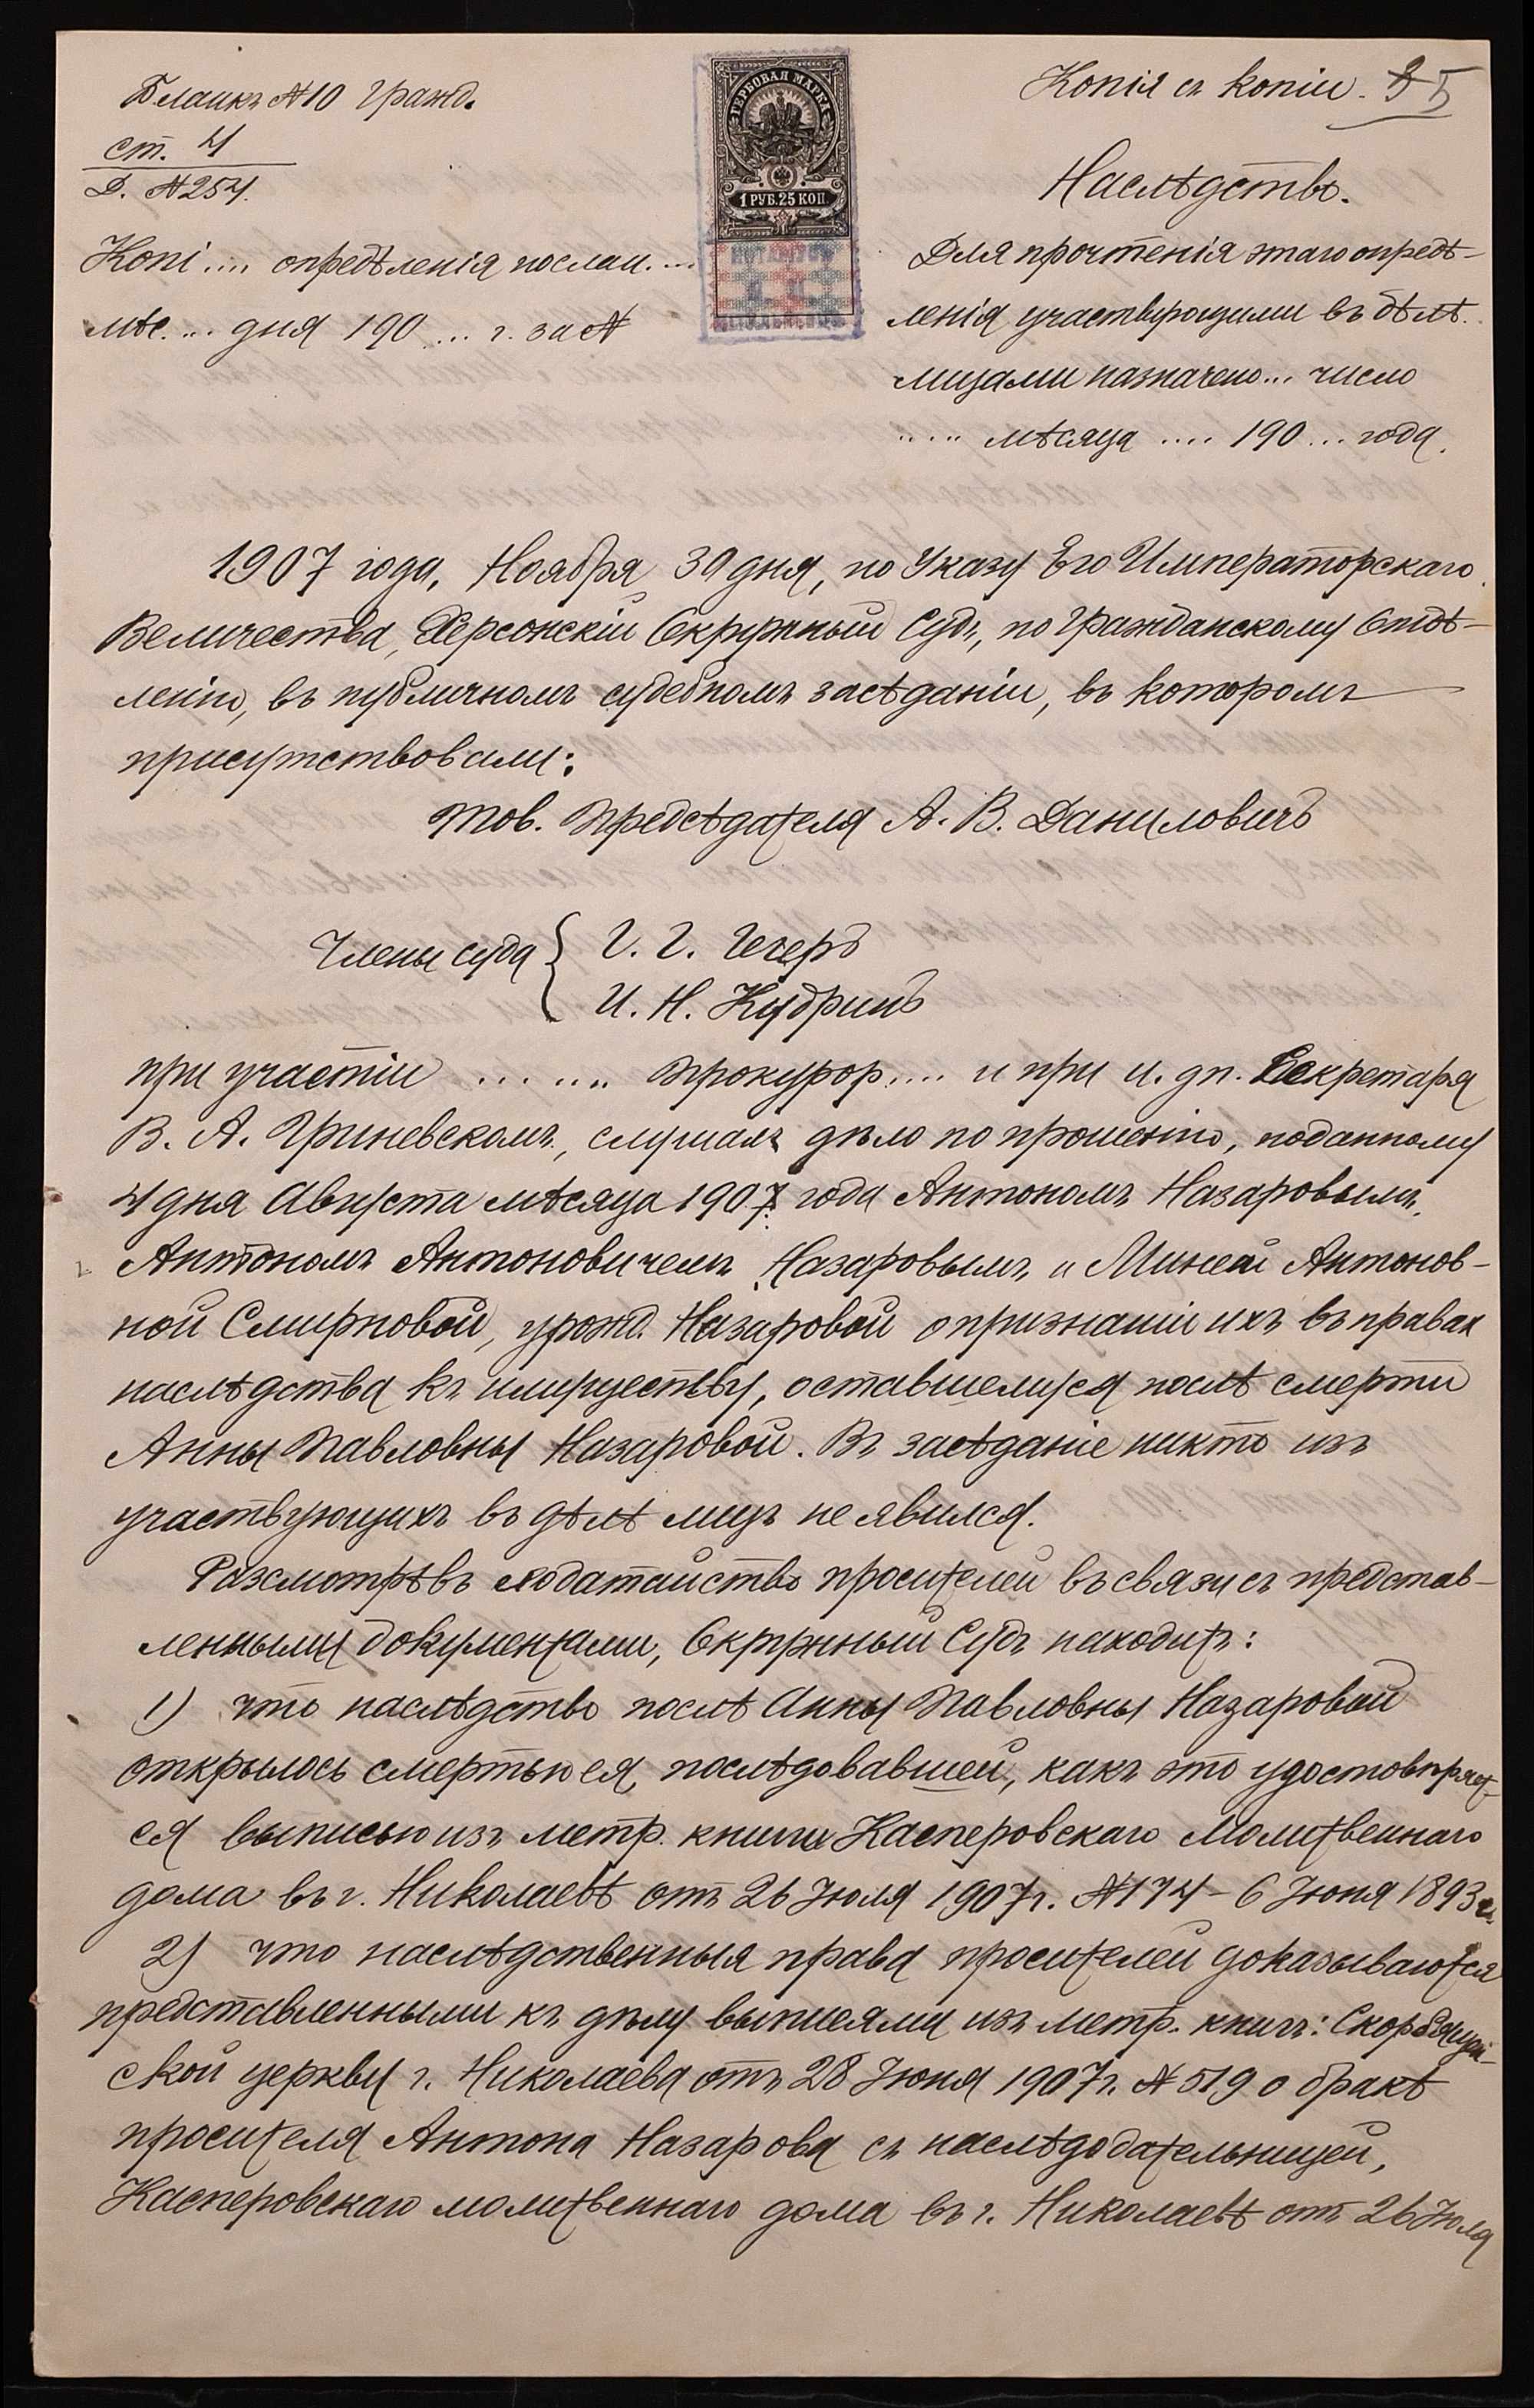 Бланкъ №10 Гражд.
ст. 4
Д. №254.
Копі.... опредѣленія послан....
мѣс. ... дня 190 ... г. за №
ГЕРБОВАЯ МАРКА
1 РУБ. 25 КОП.
Копія съ копіи.
Наслѣдство.
Для прочтенія этаго опредѣ-
ленія участвующими въ дѣлѣ
лицами назначено... число
..... мѣсяца .... 190 ... года.
1907 года, Ноября 30 дня, по Указу Его Императорскаго
Величества, Херсонскій Окружный Судъ, по Гражданскому Отдѣ-
ленію, въ публичномъ судебномъ засѣданіи, въ которомъ
присутствовали:
Тов. Предсѣдателя А. В. Даниловичъ
Члены суда { Г. Г. Гегеръ
И. Н. Кудринъ
при участіи ...... Прокурор.... и при и. дп. Секретаря
В. А. Гриневскомъ, слушалъ дѣло по прошенію, поданному
4 дня Августа мѣсяца 1907 года Антономъ Назаровымъ,
Антономъ Антоновичемъ Назаровымъ и Миней Антонов-
ной Смирновой, урожд. Назаровой о признаніи ихъ въ правах
наслѣдства къ имуществу, оставшемуся послѣ смерти
Анны Павловны Назаровой. Въ засѣданіе никто изъ
участвующихъ въ дѣлѣ лицъ не явился.
Разсмотрѣвъ ходатайство просителей въ связи съ представ-
ленными документами, Окружный Судъ находитъ:
1) что наслѣдство послѣ Анны Павловны Назаровой
открылось смертью ея, послѣдовавшей, какъ это удостовѣряет-
ся выписью изъ метр. книги Касперовскаго Молитвеннаго
дома въ г. Николаевѣ отъ 26 Іюля 1907 г. №174 - 6 Іюня 1893 г.
2) что наслѣдственныя права просителей доказываются
представленными къ дѣлу выписями изъ метр. книгъ: Скорбящен-
ской церкви г. Николаева отъ 28 Іюня 1907 г. №519 о бракѣ
просителя Антона Назарова съ наслѣдодательницей,
Касперовскаго молитвеннаго дома въ г. Николаевѣ отъ 26 Іюля